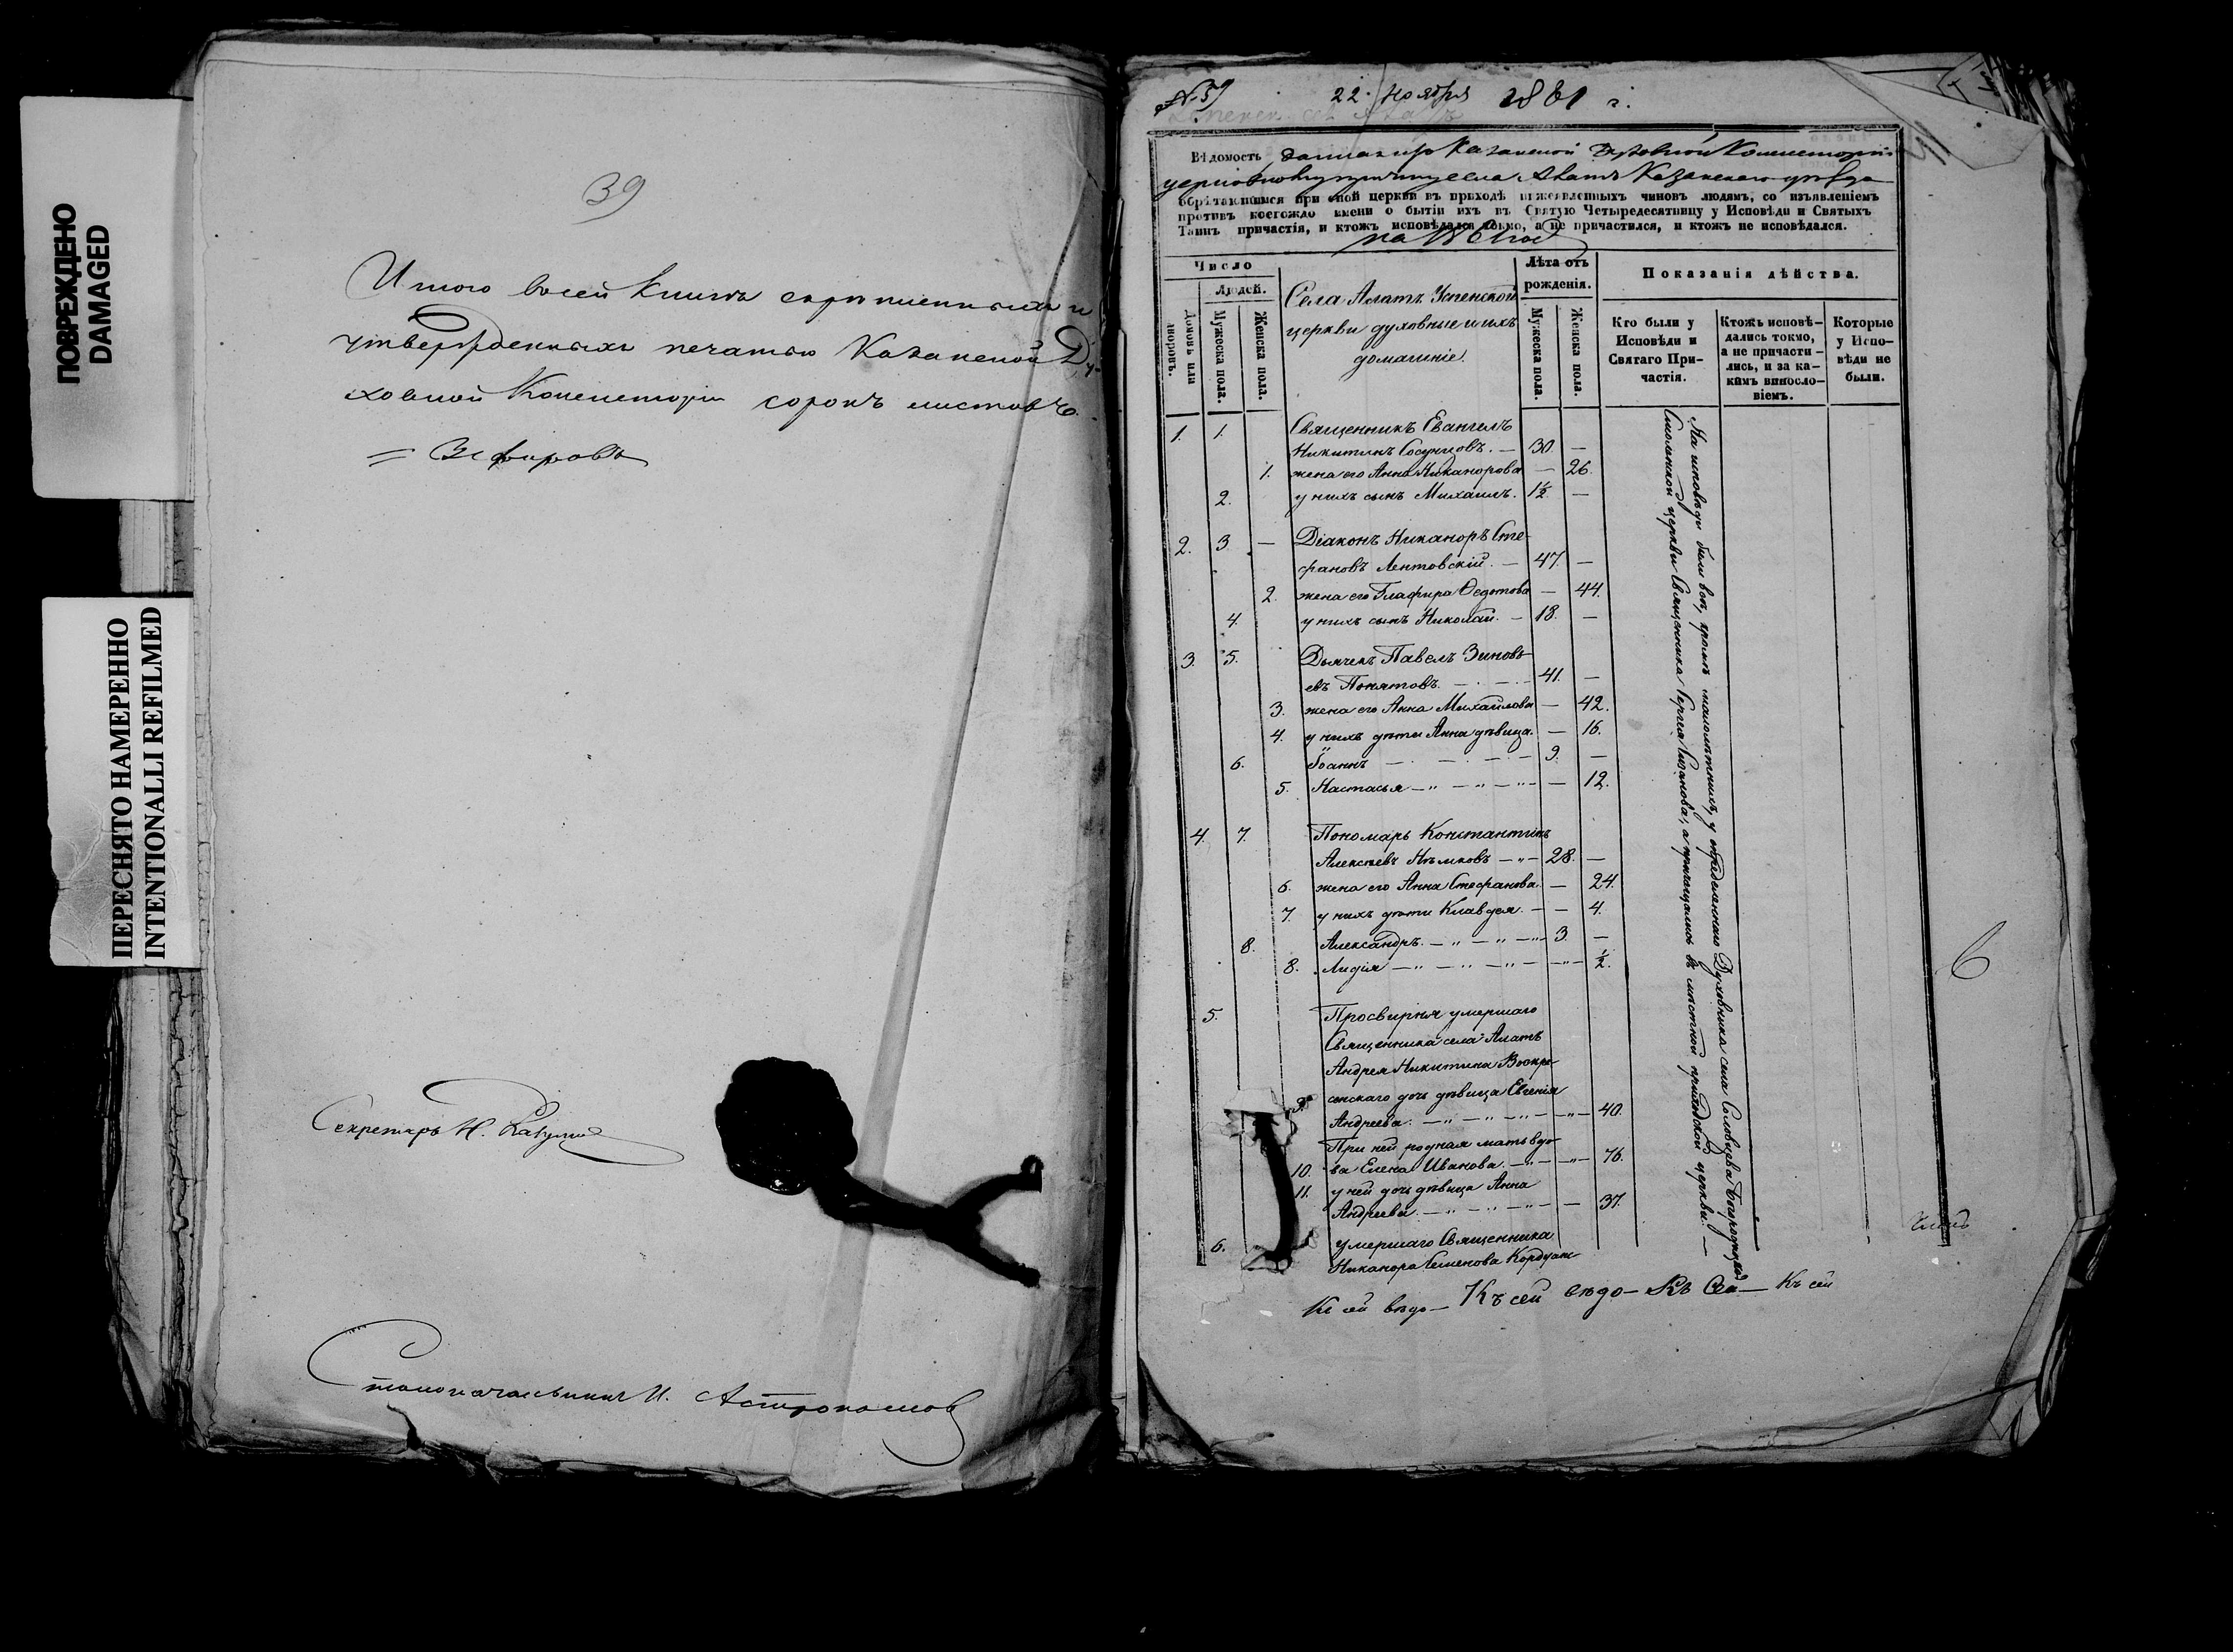 ПОВРЕЖДЕНО
DAMAGED
ПЕРЕСНЯТО НАМЕРЕННО
INTENTIONALLI REFILMED
39
Итого въ сей книге скрепленныхъ и
утвержденныхъ печатью Казанской Ду-
ховной Консисторіи сорокъ листовъ
Зефировъ
Секретарь Н.
Столоначальникъ И. Астрономов
22 Ноября 1861 г.
Вѣдомость данная изъ Казанской Духовной Консисторіи
села Алатъ Казанскаго уѣзда
обрѣтающимся при оной церкви въ приходѣ нижеявленныхъ чиновъ людямъ, со изъявленіемъ
противъ коегождо имени о бытіи ихъ въ Святую Четыредесятницу у Исповѣди и Святыхъ
Таинъ причастія, и ктожъ исповѣдался токмо, а не причастился, и ктожъ не исповѣдался.
на 1861 год
Число
Людей.
Домовъ или дворовъ.
Мужеска пола.
Женска пола.
Села Алатъ Успенской
церкви духовные и ихъ
домашніе.
Лѣта отъ
рожденія.
Мужеска пола.
Женска пола.
Показанія дѣйства.
Кто были у
Исповѣди и
Святаго При-
частія.
Ктожъ исповѣ-
дались токмо,
а не причасти-
лись, и за ка-
кимъ виносло-
віемъ.
Которые
у Испо-
вѣди не
были.
1. 1. Священникъ Евангелъ
Никитинъ Сосунцовъ. — 30. —
1. жена его Анна Никанорова — 26.
2. у нихъ сынъ Михаилъ. 1½ —
2. 3. — Діаконъ Никаноръ Сте-
фановъ Лентовскій. — 47. —
2. жена его Глафира Ѳедотова — 44.
4. у нихъ сынъ Николай. — 18. —
3. 5. Дьячекъ Павелъ Зиновь-
евъ Понятовъ. — 41. —
3. жена его Анна Михайлова — 42.
4. у нихъ дѣти Анна дѣвица. — 16.
6. Іоаннъ — 9. —
5. Настасья — 12.
4. 7. Пономарь Константинъ
Алексѣевъ Нѣмковъ — 28. —
6. жена его Анна Стефанова. — 24.
7. у нихъ дѣти Клавдія. — 4.
8. Александръ. — 3. —
8. Лидія — ½.
5. Просвирня умершаго
Священника села Алатъ
Андрея Никитина Воскре-
9. сенскаго дочь дѣвица Евгенія
Андреева. — 40.
При ней родная мать вдо-
10. ва Елена Иванова. — 76.
11. у ней дочь дѣвица Анна
Андреева. — 37.
6. умершаго Священника
Никанора Семенова
На исповѣди были всѣ, кромѣ малолѣтнихъ, у опредѣленнаго Духовника села
церкви Священника Сергія а причащались въ мѣстной приходской церкви. —
Къ сей вѣдо— Къ сей вѣдо— Къ Сей— Къ сей
6